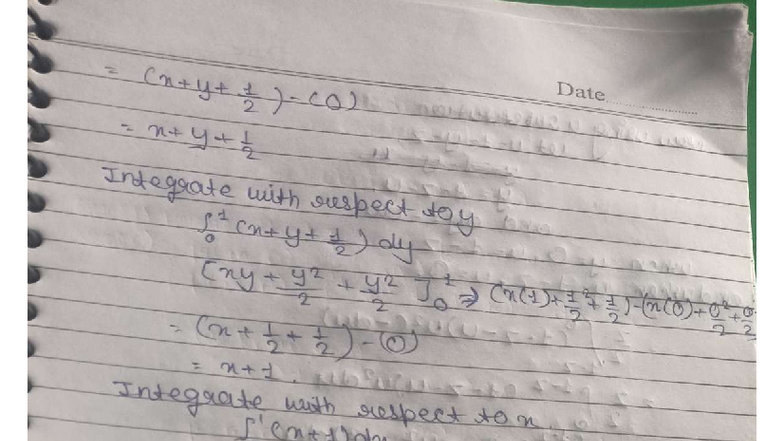 Date
= (x+y+1/2)-(0)
= x+y+1/2
Integrate with respect to y
∫₀¹ (x+y+1/2) dy
[xy + y²/2 + y²/2]₀¹ ⇒ (x(1)+1²/2+1/2)-(x(0)+0²/2+0/2
= (x+1/2+1/2)-(0)
= x+1.
Integrate with respect to x
∫¹(x+1)dx